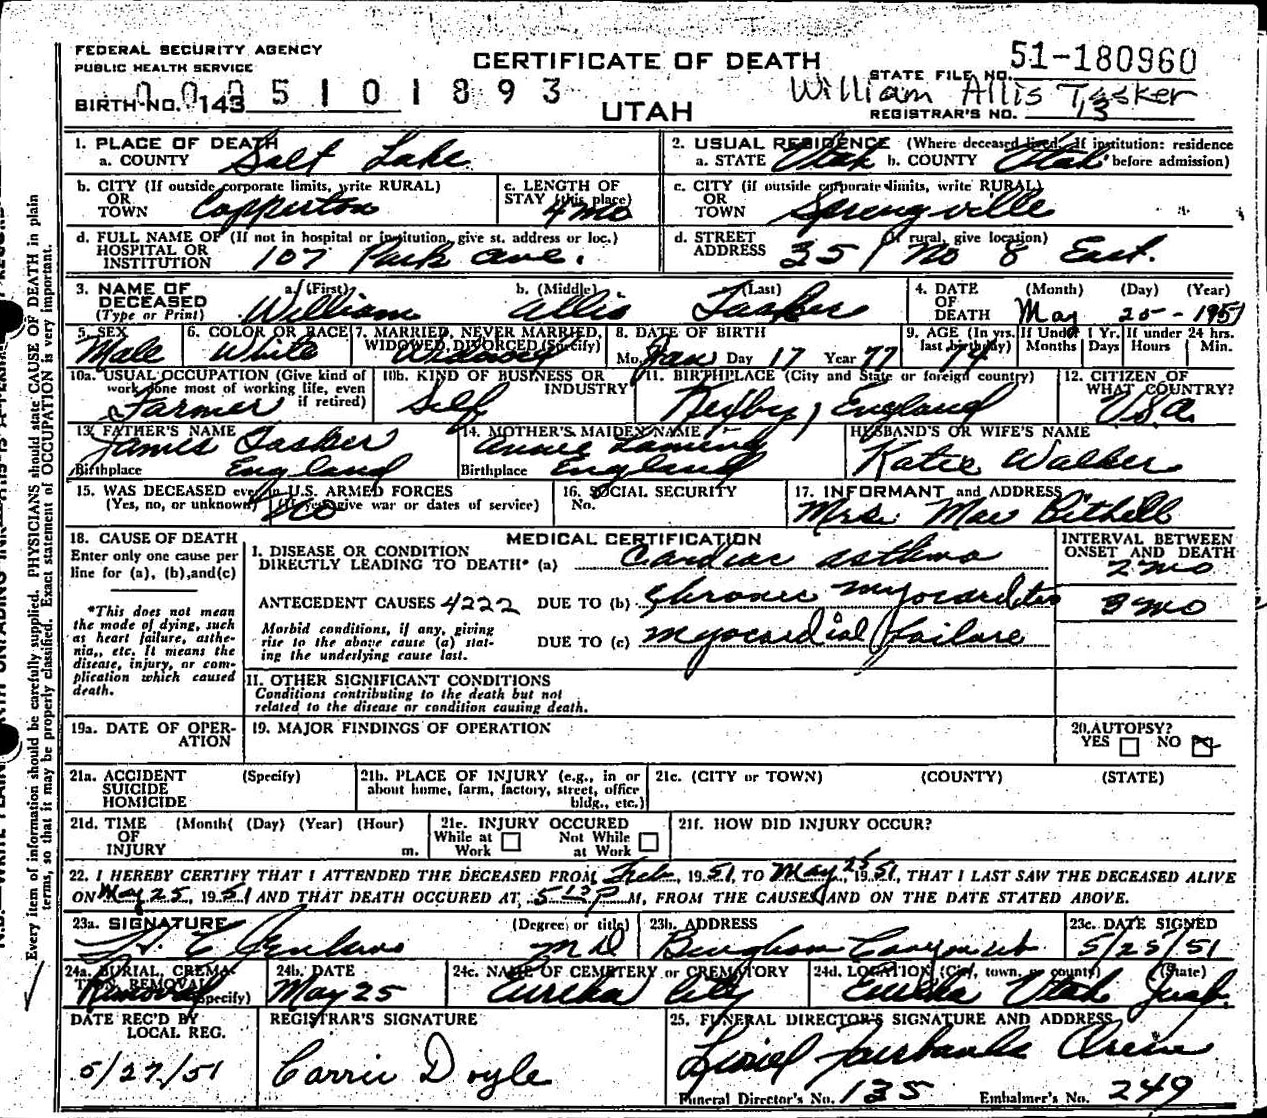 FEDERAL SECURITY AGENCY
PUBLIC HEALTH SERVICE
CERTIFICATE OF DEATH
51-180960
STATE FILE NO.
William Allis Tasker
BIRTH NO. 143
0005101893
UTAH
REGISTRAR'S NO. 13
1. PLACE OF DEATH
a. COUNTY Salt Lake
2. USUAL RESIDENCE (Where deceased lived. If institution: residence before admission)
a. STATE Utah b. COUNTY Utah
b. CITY (If outside corporate limits, write RURAL)
OR TOWN Copperton
c. LENGTH OF STAY (this place) 4 mo
c. CITY (if outside corporate limits, write RURAL)
OR TOWN Springville
d. FULL NAME OF (If not in hospital or institution, give st. address or loc.)
HOSPITAL OR INSTITUTION 107 Park Ave.
d. STREET ADDRESS (If rural, give location)
351 No 8 East.
3. NAME OF DECEASED (Type or Print)
a. (First) b. (Middle) (Last)
William Allis Tasker
4. DATE OF DEATH (Month) (Day) (Year)
May 25 - 1951
5. SEX Male
6. COLOR OR RACE White
7. MARRIED, NEVER MARRIED, WIDOWED, DIVORCED (Specify)
Widowed
8. DATE OF BIRTH
Mo. Jan Day 17 Year 77
9. AGE (In yrs. last birthday) 74
If Under 1 Yr. Months Days
If under 24 hrs. Hours Min.
10a. USUAL OCCUPATION (Give kind of work done most of working life, even if retired)
Farmer
10b. KIND OF BUSINESS OR INDUSTRY
Self
11. BIRTHPLACE (City and State or foreign country)
England
12. CITIZEN OF WHAT COUNTRY?
U.S.A.
13. FATHER'S NAME
James Tasker
Birthplace England
14. MOTHER'S MAIDEN NAME
Annie
Birthplace England
HUSBAND'S OR WIFE'S NAME
Katie Walker
15. WAS DECEASED ever in U.S. ARMED FORCES
(Yes, no, or unknown) (If yes, give war or dates of service)
No
16. SOCIAL SECURITY No.
17. INFORMANT and ADDRESS
Mrs. Mae Bithell
18. CAUSE OF DEATH
Enter only one cause per line for (a), (b), and (c)
*This does not mean the mode of dying, such as heart failure, asthenia,, etc. It means the disease, injury, or complication which caused death.
MEDICAL CERTIFICATION
INTERVAL BETWEEN ONSET AND DEATH
I. DISEASE OR CONDITION
DIRECTLY LEADING TO DEATH* (a) Cardiac asthma
2 mo
ANTECEDENT CAUSES 4222 DUE TO (b) Chronic myocarditis
8 mo
Morbid conditions, if any, giving rise to the above cause (a) stating the underlying cause last.
DUE TO (c) Myocardial Failure
II. OTHER SIGNIFICANT CONDITIONS
Conditions contributing to the death but not
related to the disease or condition causing death.
19a. DATE OF OPERATION
19. MAJOR FINDINGS OF OPERATION
20. AUTOPSY?
YES NO
21a. ACCIDENT SUICIDE HOMICIDE (Specify)
21b. PLACE OF INJURY (e.g., in or about home, farm, factory, street, office bldg., etc.)
21c. (CITY or TOWN) (COUNTY) (STATE)
21d. TIME OF INJURY (Month( (Day) (Year) (Hour) m.
21e. INJURY OCCURED
While at Work Not While at Work
21f. HOW DID INJURY OCCUR?
22. I HEREBY CERTIFY THAT I ATTENDED THE DECEASED FROM Feb, 1951, TO May 25, 1951, THAT I LAST SAW THE DECEASED ALIVE
ON May 25, 1951 AND THAT DEATH OCCURED AT 5 15 P M, FROM THE CAUSES AND ON THE DATE STATED ABOVE.
23a. SIGNATURE (Degree or title)
M D
23b. ADDRESS
Bingham Canyon Ut
23c. DATE SIGNED
5/25/51
24a. BURIAL, CREMATION, REMOVAL (Specify)
Removal
24b. DATE
May 25
24c. NAME OF CEMETERY or CREMATORY
Eureka City
24d. LOCATION (City, town, or county) (State)
Eureka Utah Juab
DATE REC'D BY LOCAL REG.
5/27/51
REGISTRAR'S SIGNATURE
Carrie Doyle
25. FUNERAL DIRECTOR'S SIGNATURE AND ADDRESS
Fairbanks
Funeral Director's No. 135 Embalmer's No. 249
Every item of information should be carefully supplied. PHYSICIANS should state CAUSE OF DEATH in plain
terms, so that it may be properly classified. Exact statement of OCCUPATION is very important.